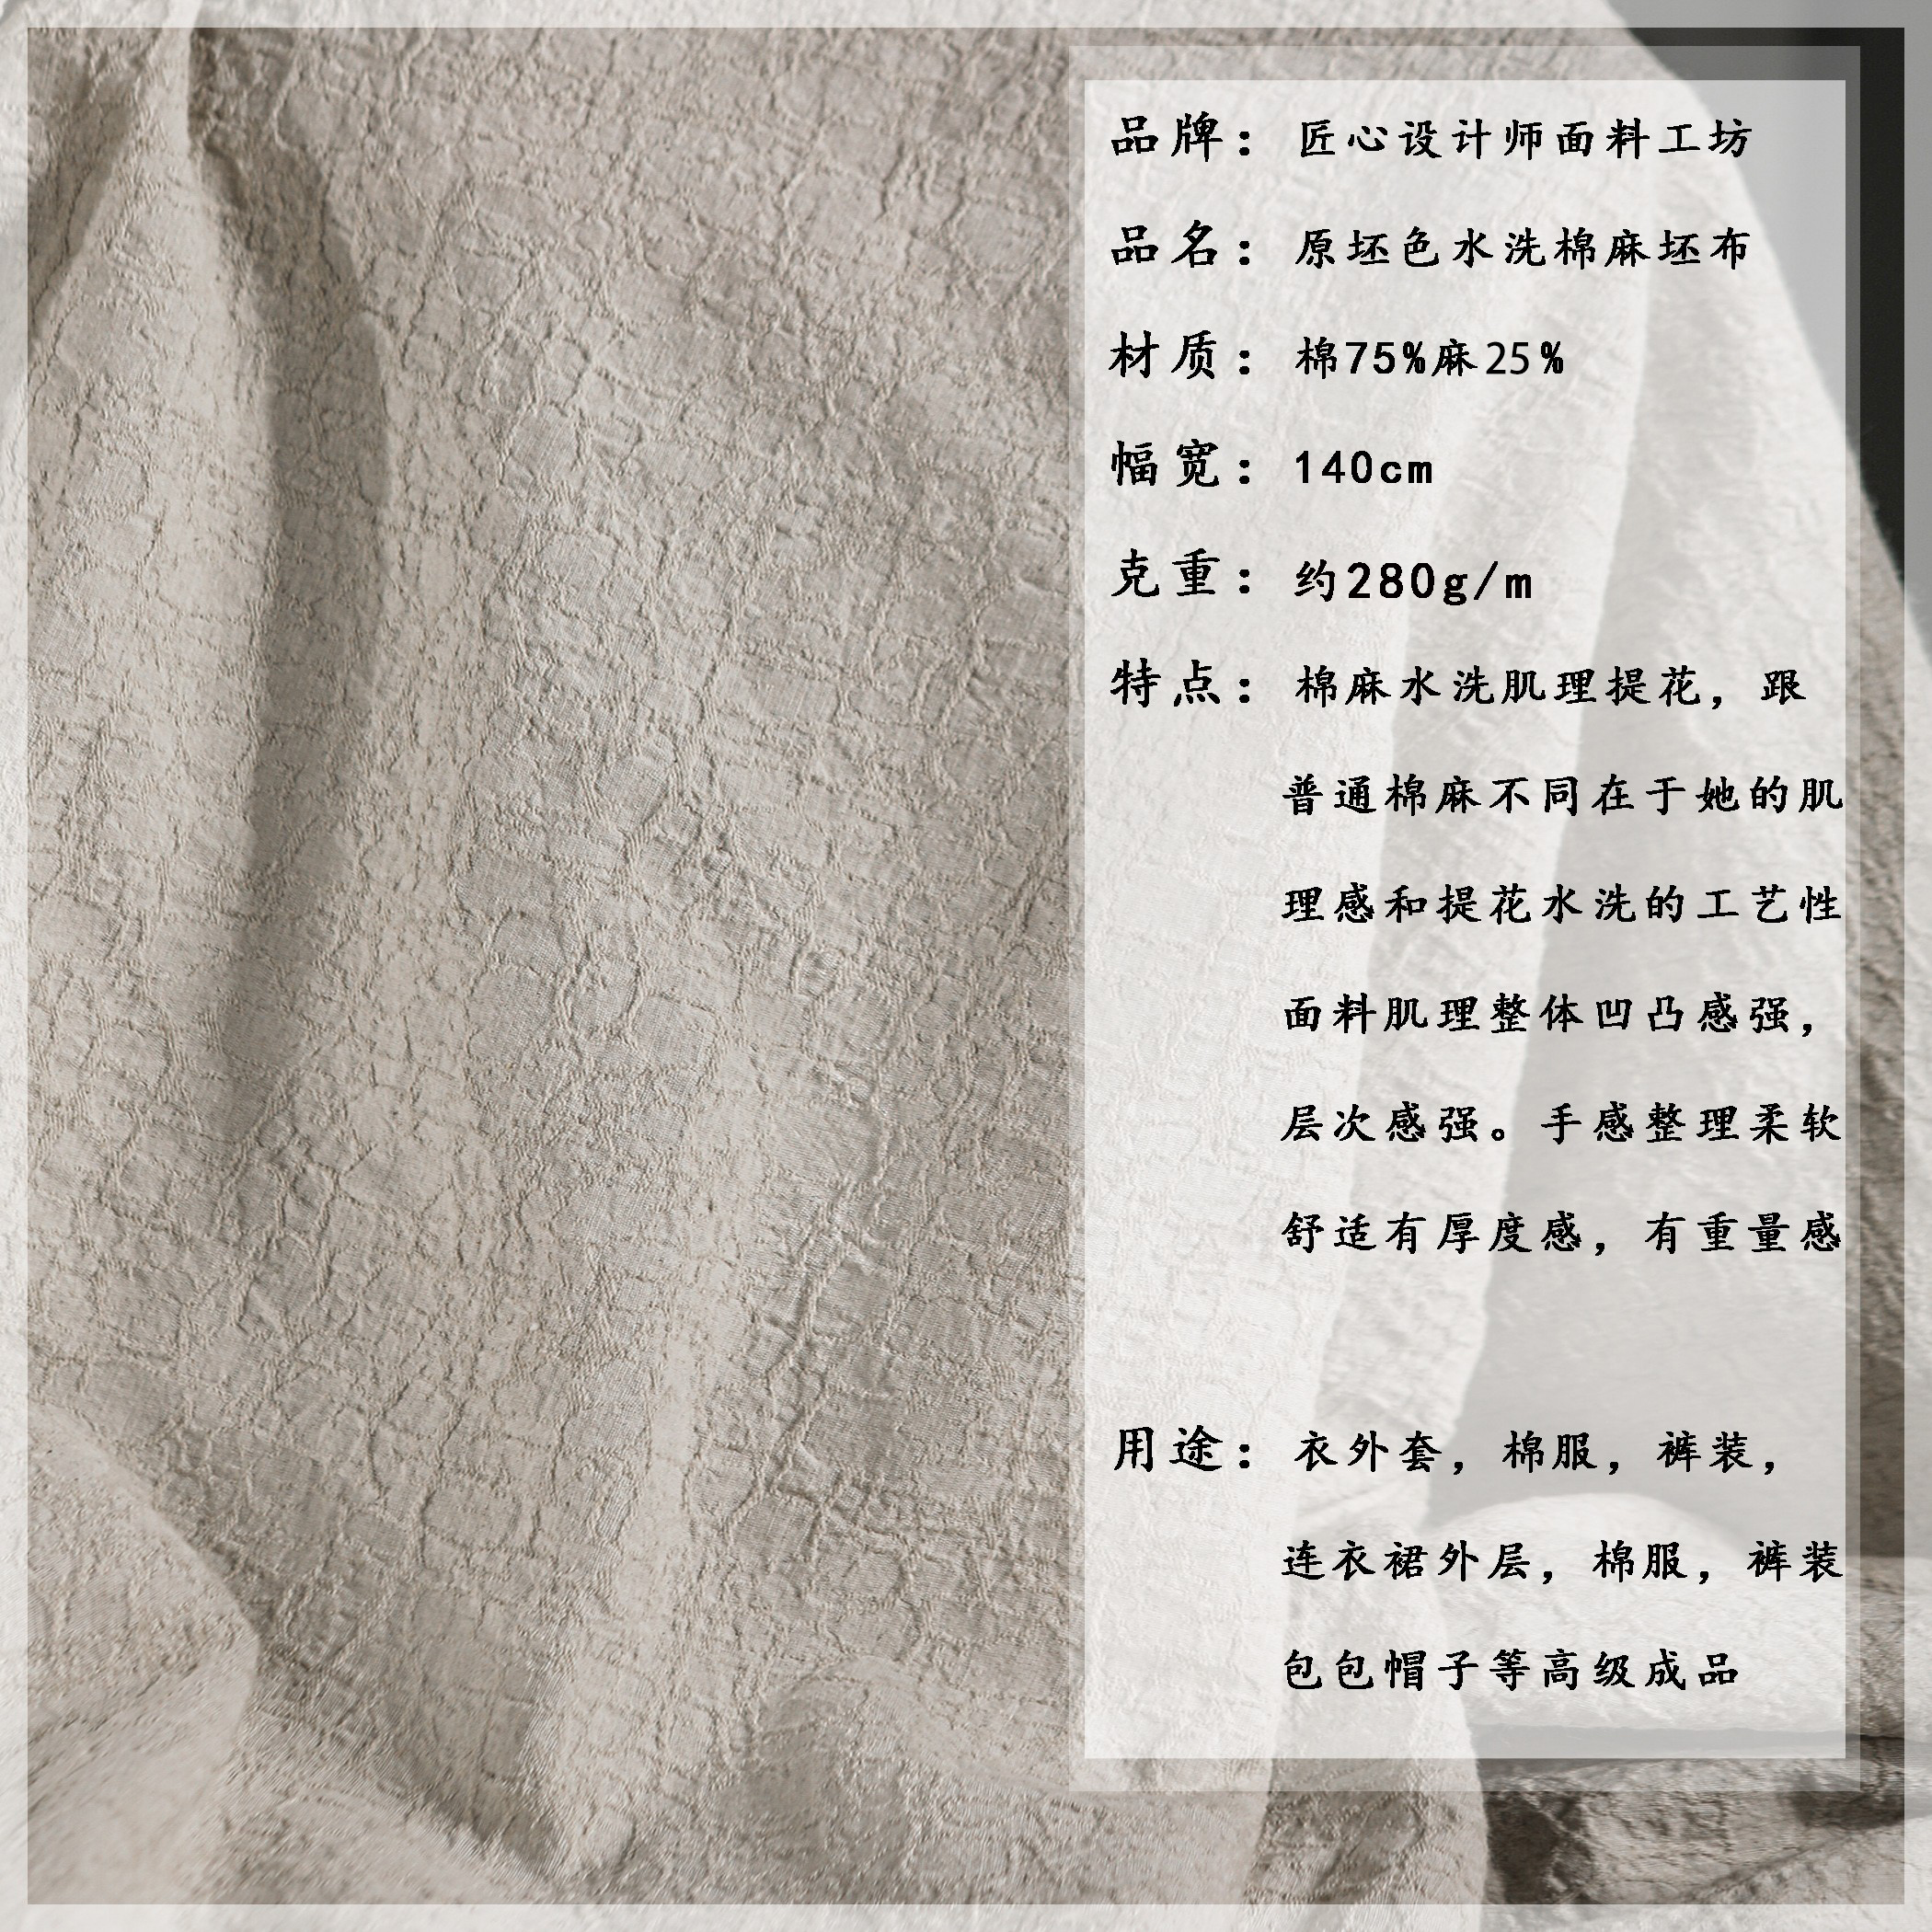 品牌：匠心设计师面料工坊
品名：原坯色水洗棉麻坯布
材质：棉75%麻25%
幅宽：140cm
克重：约280g/m
特点：棉麻水洗肌理提花，跟
普通棉麻不同在于她的肌
理感和提花水洗的工艺性
面料肌理整体凹凸感强，
层次感强。手感整理柔软
舒适有厚度感，有重量感
用途：衣外套，棉服，裤装，
连衣裙外层，棉服，裤装
包包帽子等高级成品